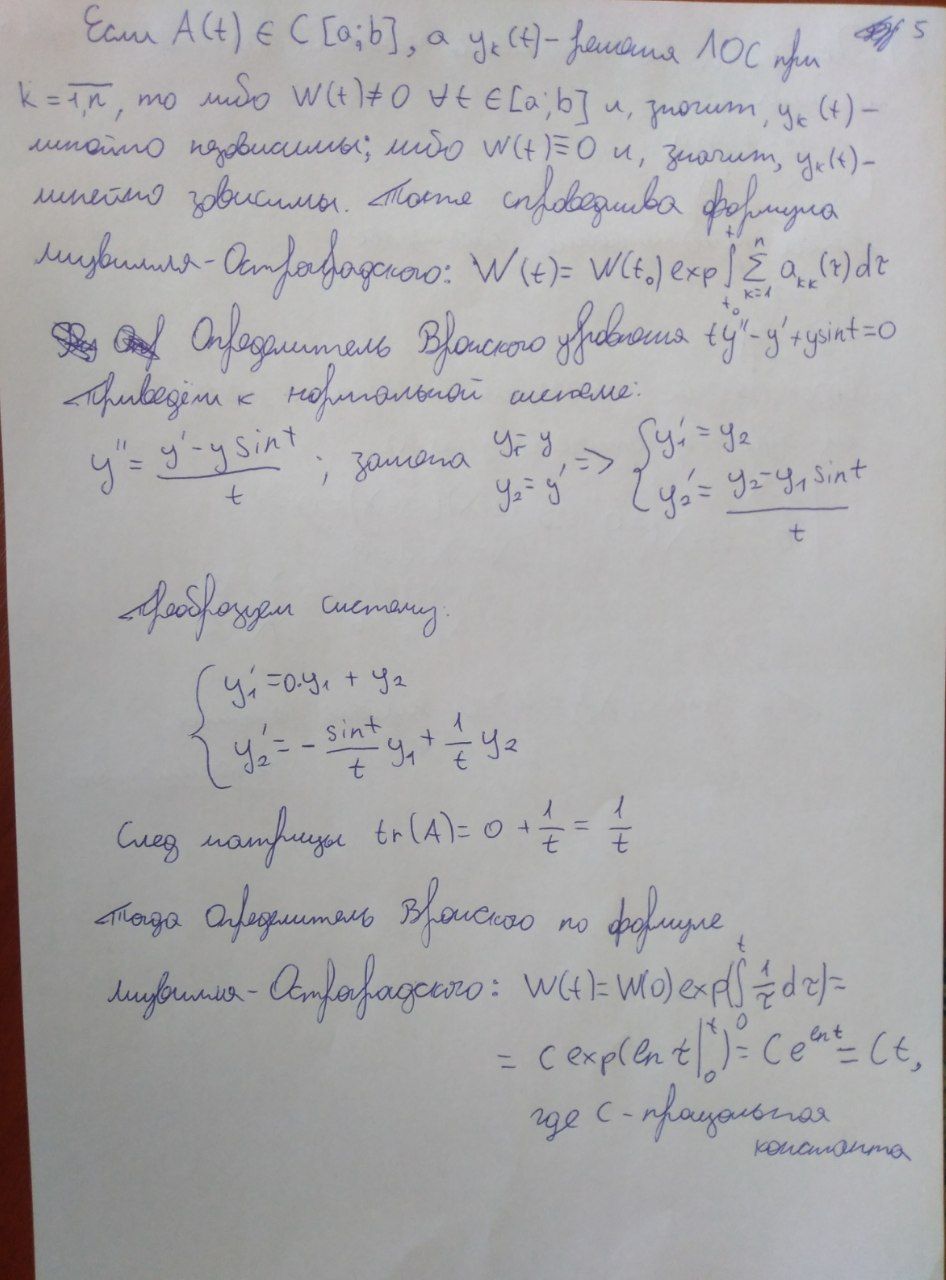 5
Если A(t) ∈ C [a;b], а yₖ(t) - решения ЛОС при
k = 1,n, то либо W(t) ≠ 0 ∀t ∈ [a;b] и, значит, yₖ(t) -
линейно независимы; либо W(t) ≡ 0 и, значит, yₖ(t) -
линейно зависимы. Тогда справедлива формула
Лиувилля-Остроградского: W(t) = W(t₀) exp ∫_{t₀}^{t} ∑_{k=1}^{n} aₖₖ(τ)dτ
Определитель Вронского уравнения ty'' - y' + y sint = 0
Приведём к нормальной системе:
y'' = (y' - y sint)/t ; замена y₁ = y, y₂ = y' => { y₁' = y₂
y₂' = (y₂ - y₁ sint)/t
Преобразуем систему:
{ y₁' = 0·y₁ + y₂
y₂' = - sint/t y₁ + 1/t y₂
След матрицы tr(A) = 0 + 1/t = 1/t
Тогда Определитель Вронского по формуле
Лиувилля-Остроградского: W(t) = W(0) exp(∫_{0}^{t} 1/τ dτ) =
= C exp(ln t|₀ᵗ) = C e^{ln t} = Ct,
где C -
константа